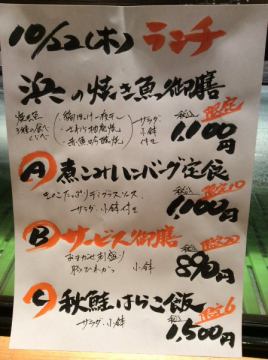 10/22(木) ランチ
浜の焼き魚御膳
焼魚 3種の食べくらべ
サラダ、小鉢付き
税込 限定
1,100円
A 煮こみハンバーグ定食
きのこたっぷりデミグラスソース
サラダ、小鉢付き
税込 限定10
1,000円
B サービス御膳
おまかせ刺盛り
小鉢
税込 限定20
890円
C 秋鮭はらこ飯
サラダ、小鉢
税込 限定6
1,500円